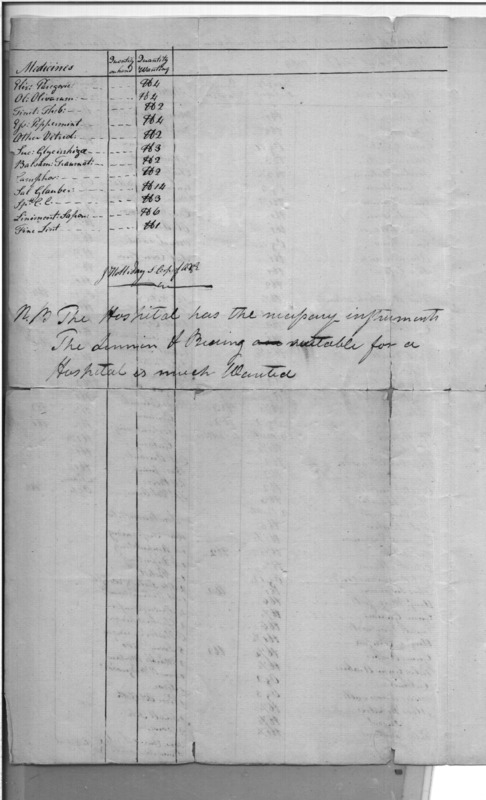 Medicines Quantity on hand Quantity Wanting
Elix: Paregoric ℔4
Ol: Olivarum ℔4
Tinct: Theb: ℔2
Ess: Peppermint ℔4
Æther Vitriol: ℔2
Suc: Glycirrhiza ℔3
Balsam: Traumat: ℔2
Camphor ℔2
Sal Glauber: ℔14
Spt. C. C. ℔3
Liniment: Sapon: ℔6
Fine Lint ℔1
J Holliday S
NB The Hospital has the necessary instruments
The Linnin & suitable for a
Hospital is much Wanted